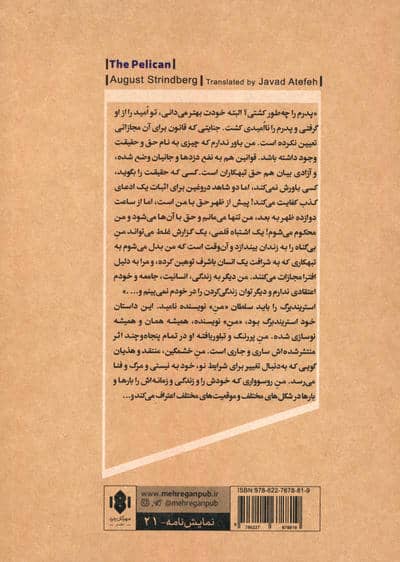 The Pelican
August Strindberg | Translated by Javad Atefeh
«پدرم را چه‌طور کشتی؟ البته خودت بهتر می‌دانی، تو اُمید را از او
گرفتی و پدرم را ناامیدی کشت. جنایتی که قانون برای آن مجازاتی
تعیین نکرده است. من باور ندارم که چیزی به نام حق و حقیقت
وجود داشته باشد. قوانین هم به نفع دزدها و جانیان وضع شده،
و آزادی بیان هم حق تبهکاران است. کسی که حقیقت را بگوید،
کسی باورش نمی‌کند، اما دو شاهد دروغین برای اثبات یک ادعای
کذب کفایت می‌کند! پیش از ظهر حق با من است، اما از ساعت
دوازده ظهر به بعد، من تنها می‌مانم و حق با آن‌ها می‌شود و من
محکوم می‌شوم! یک اشتباه قلمی، یک گزارش غلط می‌تواند منِ
بی‌گناه را به زندان بیندازد و آن‌وقت است که من بدل می‌شوم به
تبهکاری که به شرافت یک انسان باشرف توهین کرده، و مرا به دلیل
افترا مجازات می‌کنند. من دیگر به زندگی، انسانیت، جامعه و خودم
اعتقادی ندارم و دیگر توان زندگی‌کردن را در خودم نمی‌بینم و....»
استریندبرگ را باید سلطان «منِ» نویسنده نامید. این داستان
خود استریندبرگ بود، «منِ» نویسنده، همیشه همان و همیشه
نوسازی شده. من پررنگ و تناوریافته او در تمام پنجاه‌وچند اثر
منتشرشده‌اش ساری و جاری است. من خشمگین، منتقد و هذیان
گویی که به‌دنبال تغییر برای شرایط نو، خود به نیستی و مرگ و فنا
می‌رسد. من روسوواری که خودش را و زندگی و زمانه‌اش را بارها و
بارها در شکل‌های مختلف و موقعیت‌های مختلف اعتراف می‌کند و...
www.mehreganpub.ir
@mehreganpub
نمایش‌نامه - ۲۱
ISBN 978-622-7678-81-9